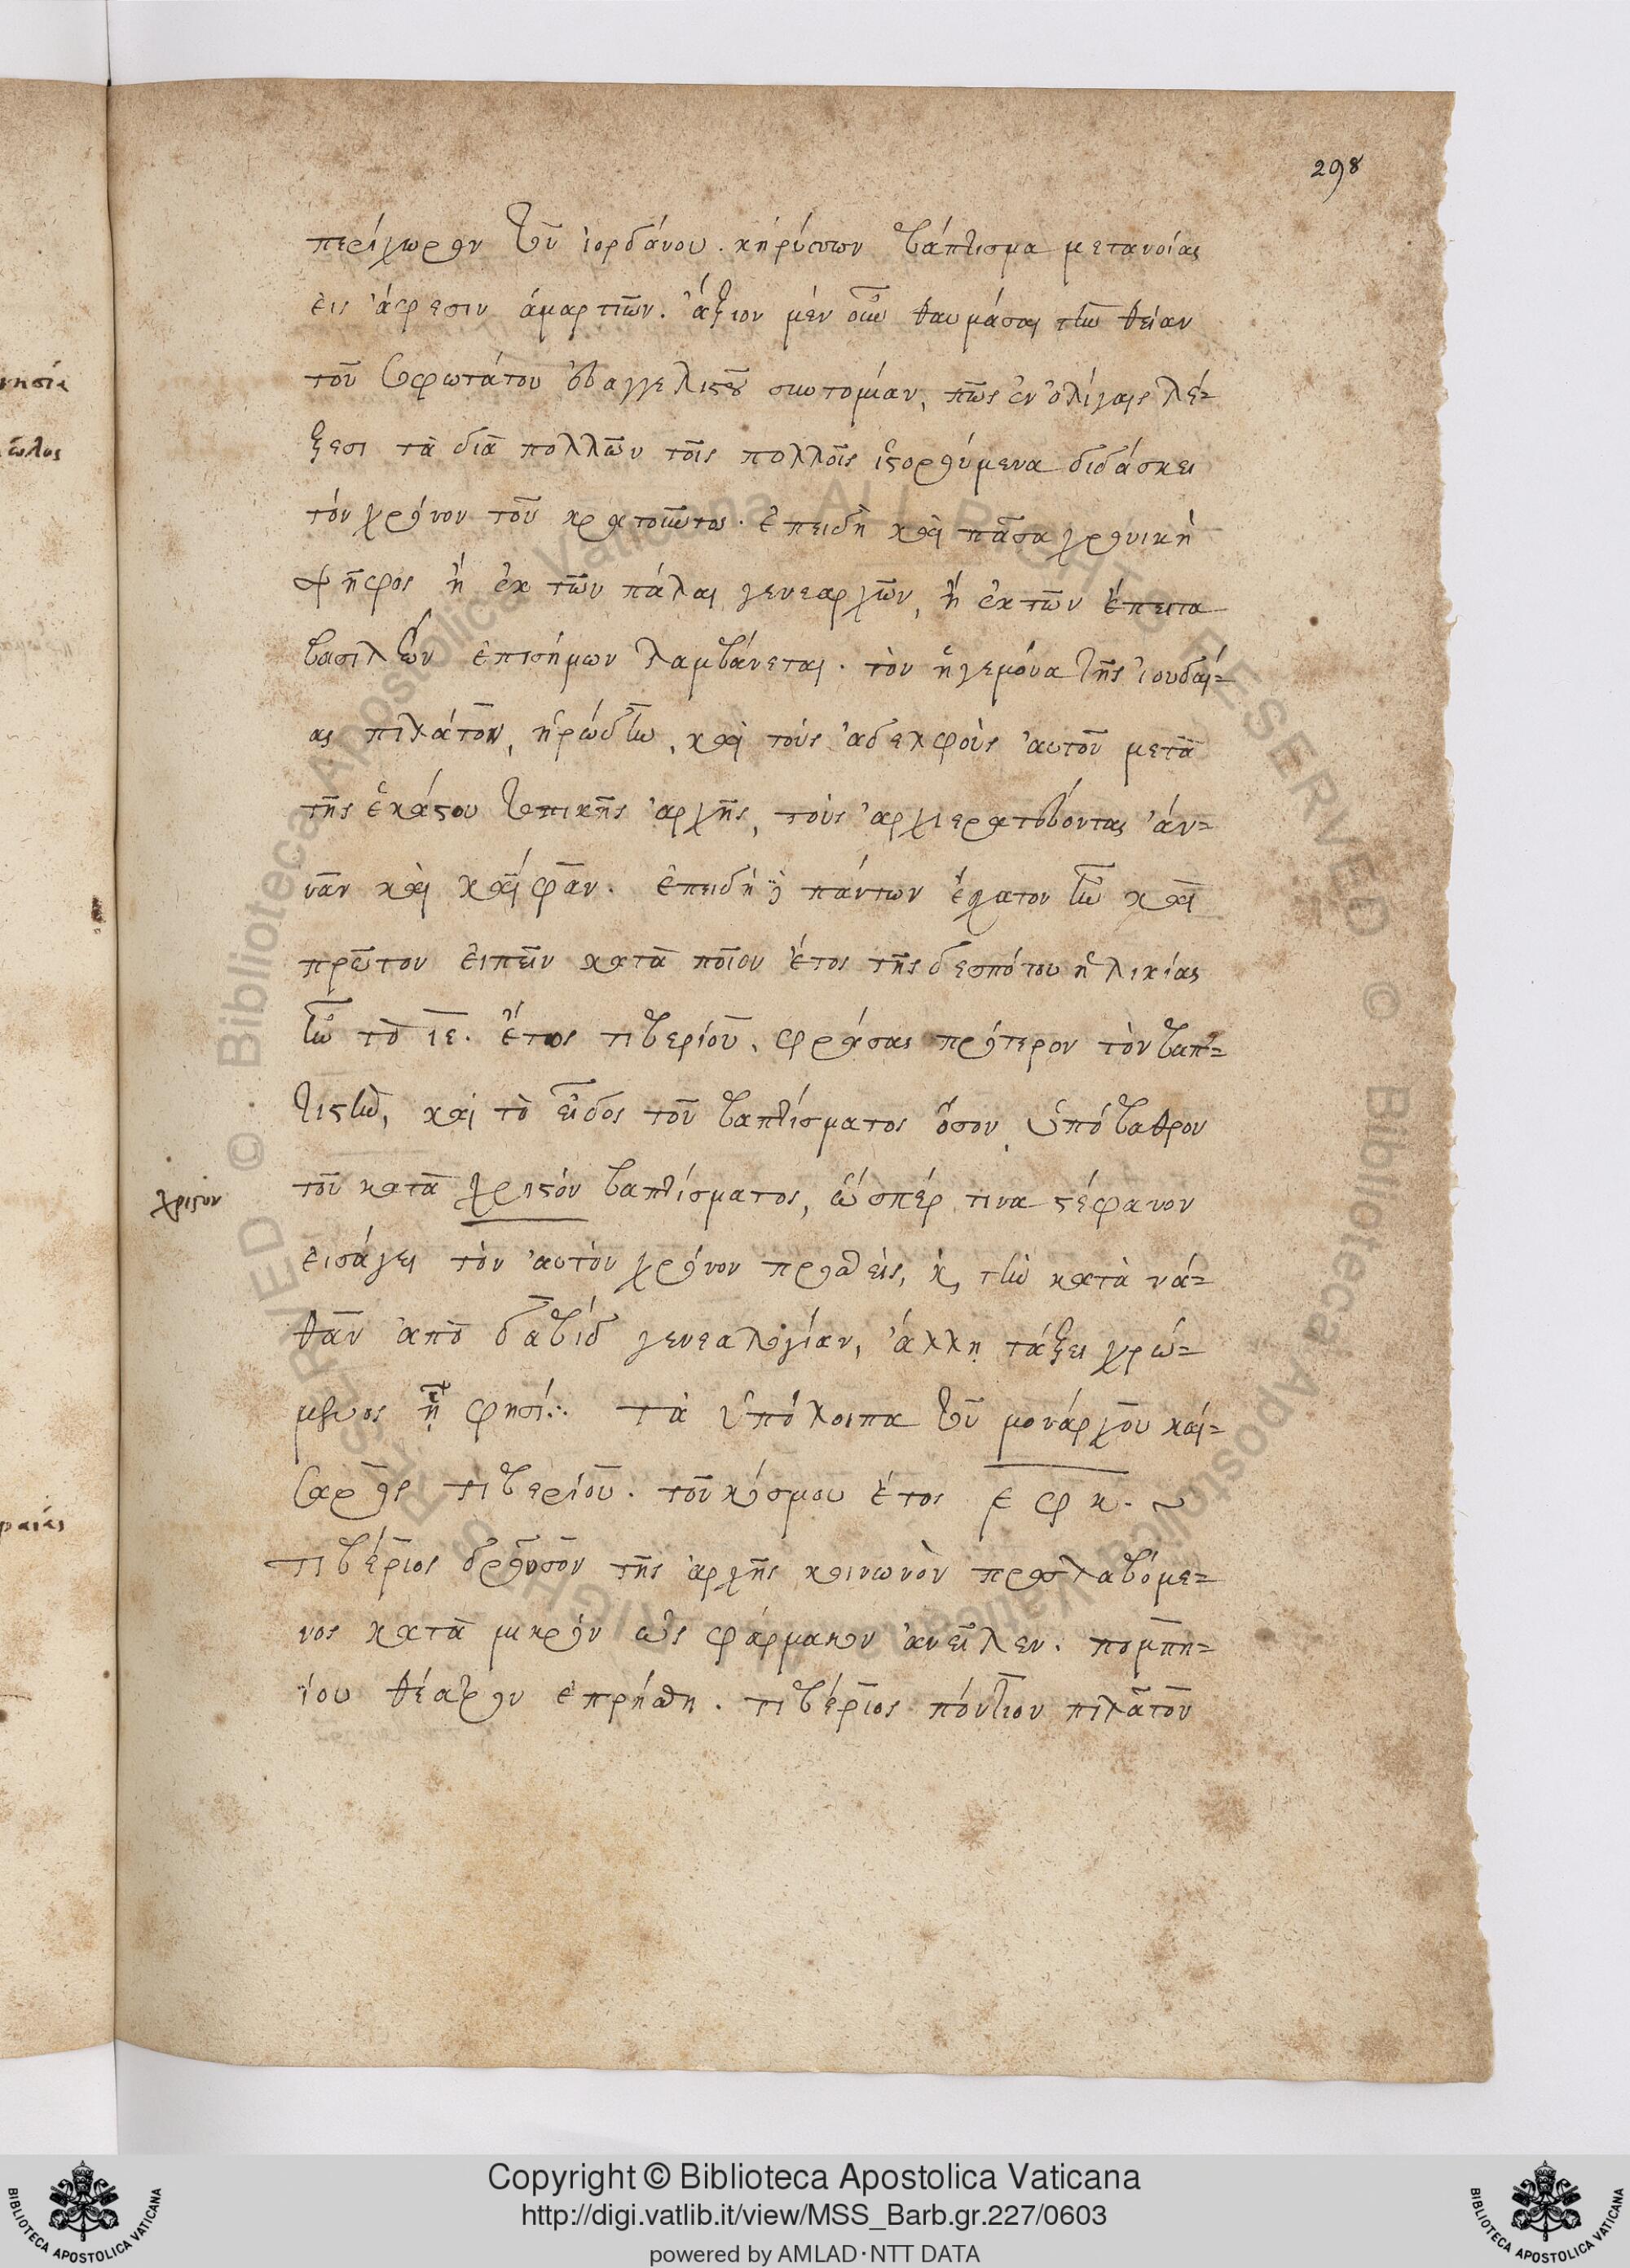 298
περίχωρον τοῦ ἰορδάνου. κηρύσσων βάπτισμα μετανοίας
εἰς ἄφεσιν ἁμαρτιῶν. ἄξιον μὲν οὖν θαυμάσαι τὴν θείαν
τοῦ σοφωτάτου εὐαγγελιστοῦ συντομίαν, πῶς ἐν ὀλίγαις λέ=
ξεσι τὰ διὰ πολλῶν τοῖς πολλοῖς ἱστορούμενα διδάσκει
τὸν χρόνον τοῦ κρατοῦντος. ἐπειδὴ καὶ πᾶσα χρονικὴ
ψῆφος ἢ ἐκ τῶν πάλαι γενεαρχῶν, ἢ ἐκ τῶν ἔπειτα
βασιλέων ἐπισήμων λαμβάνεται. τὸν ἡγεμόνα τῆς ἰουδαί=
ας πιλάτον, ἡρώδην, καὶ τοὺς ἀδελφοὺς αὐτοῦ μετὰ
τῆς ἑκάστου τοπικῆς ἀρχῆς, τοὺς ἀρχιερατεύοντας ἄν=
ναν καὶ καϊάφαν. ἐπειδὴ πάντων ἔσχατον ἦν καὶ
πρῶτον εἰπεῖν κατὰ ποῖον ἔτος τῆς δεσπότου ἡλικίας
ἦν τὸ ιε. ἔτος τιβερίου, φράσας πρότερον τὸν βαπ=
τιστὴν, καὶ τὸ εἶδος τοῦ βαπτίσματος ὅσον ὑπόβαθρον
χριστὸν
τοῦ κατὰ χριστὸν βαπτίσματος, ὥσπέρ τινα στέφανον
εἰσάγει τὸν αὐτὸν χρόνον προθεὶς, κ, τὴν κατὰ νά=
θαν ἀπὸ δαβὶδ γενεαλογίαν, ἄλλῃ τάξει χρώ=
μενος ᾗ φησί: τὰ ὑπόλοιπα τοῦ μονάρχου καί=
σαρος τιβερίου. τοῦ κόσμου ἔτος ͵ε φ κ. ~
τιβέριος δροῦσον τῆς ἀρχῆς κοινωνὸν προσλαβόμε=
νος κατὰ μικρὸν ὡς φάρμακον ἀνεῖλεν. πομπη=
ΐου θέατρον ἐπρήσθη. τιβέριος πόντιον πιλᾶτον
Copyright © Biblioteca Apostolica Vaticana
http://digi.vatlib.it/view/MSS_Barb.gr.227/0603
powered by AMLAD·NTT DATA
BIBLIOTECA APOSTOLICA VATICANA
BIBLIOTECA APOSTOLICA VATICANA